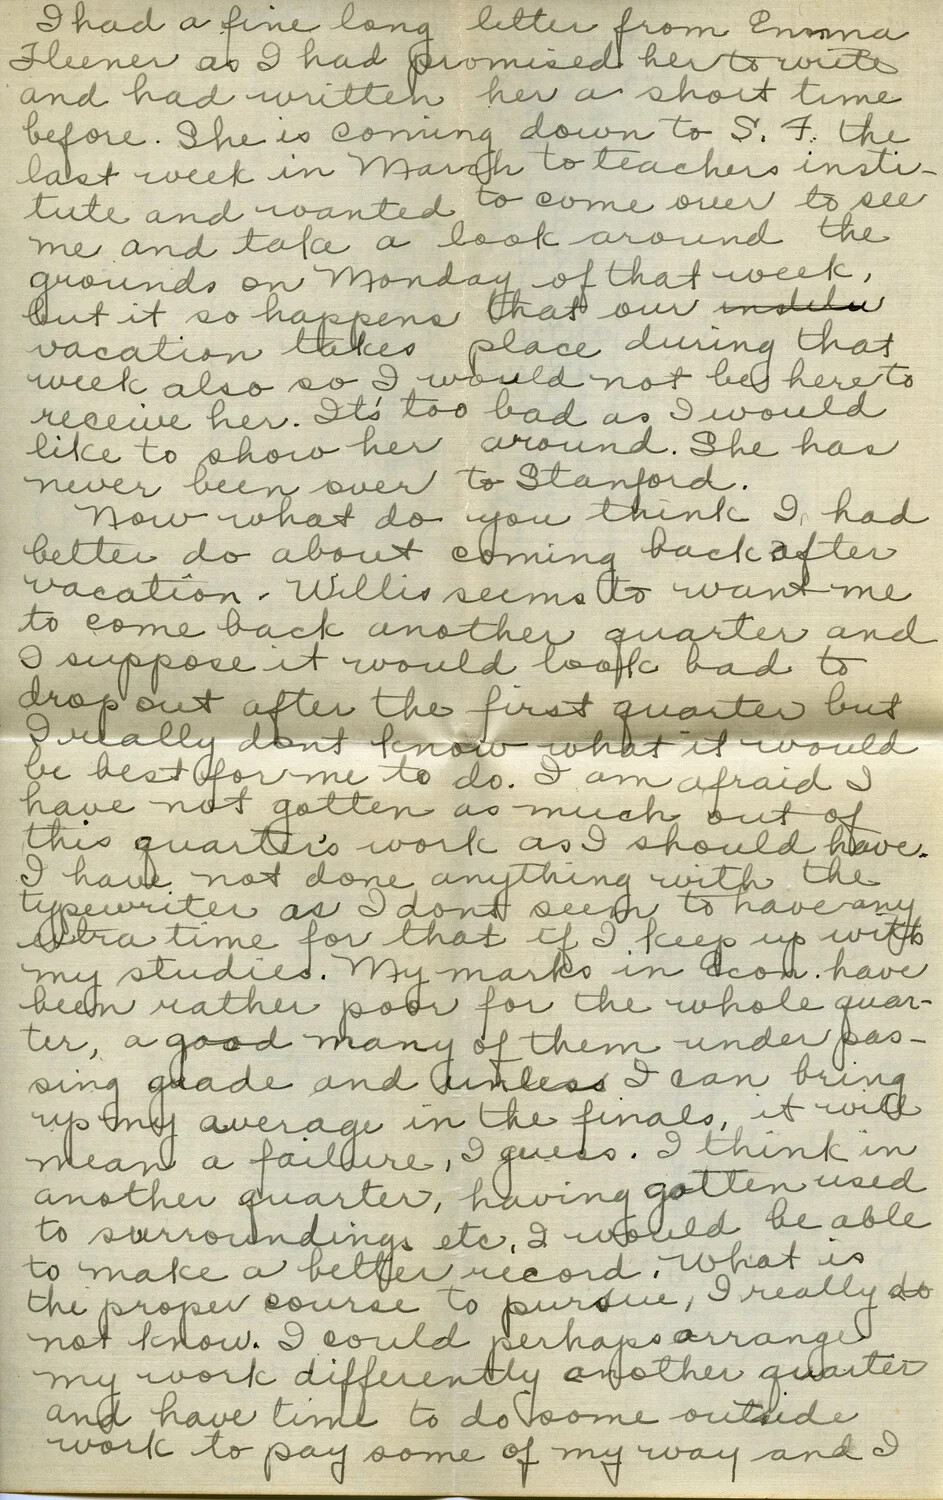 I had a fine long letter from Emma
Fleener as I had promised her to write
and had written her a short time
before. She is coming down to S. F. the
last week in March to teachers insti-
tute and wanted to come over to see
me and take a look around the
grounds on Monday of that week,
but it so happens that our
vacation takes place during that
week also so I would not be here to
receive her. It's too bad as I would
like to show her around. She has
never been over to Stanford.
Now what do you think I had
better do about coming back after
vacation. Willis seems to want me
to come back another quarter and
I suppose it would look bad to
drop out after the first quarter but
I really dont know what it would
be best for me to do. I am afraid I
have not gotten as much out of
this quarter's work as I should have.
I have not done anything with the
typewriter as I dont seem to have any
extra time for that if I keep up with
my studies. My marks in Econ. have
been rather poor for the whole quar-
ter, a good many of them under pas-
sing grade and unless I can bring
up my average in the finals, it will
mean a failure, I guess. I think in
another quarter, having gotten used
to surroundings etc, I would be able
to make a better record. What is
the proper course to pursue, I really do
not know. I could perhaps arrange
my work differently another quarter
and have time to do some outside
work to pay some of my way and I